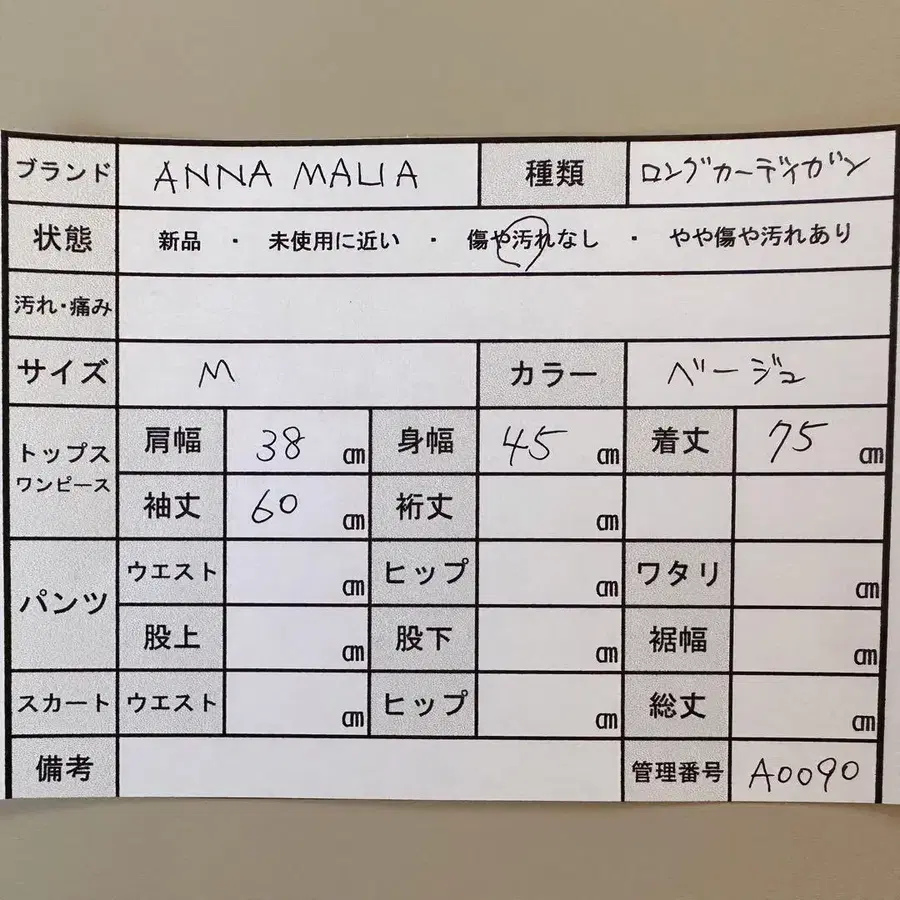 ブランド ANNA MALIA 種類 ロングカーディガン
状態 新品 ・ 未使用に近い ・ 傷や汚れなし ・ やや傷や汚れあり
汚れ・痛み
サイズ M カラー ベージュ
トップス ワンピース
肩幅 38 cm 身幅 45 cm 着丈 75 cm
袖丈 60 cm 裄丈 cm
パンツ
ウエスト cm ヒップ cm ワタリ cm
股上 cm 股下 cm 裾幅 cm
スカート ウエスト cm ヒップ cm 総丈 cm
備考 管理番号 A0090